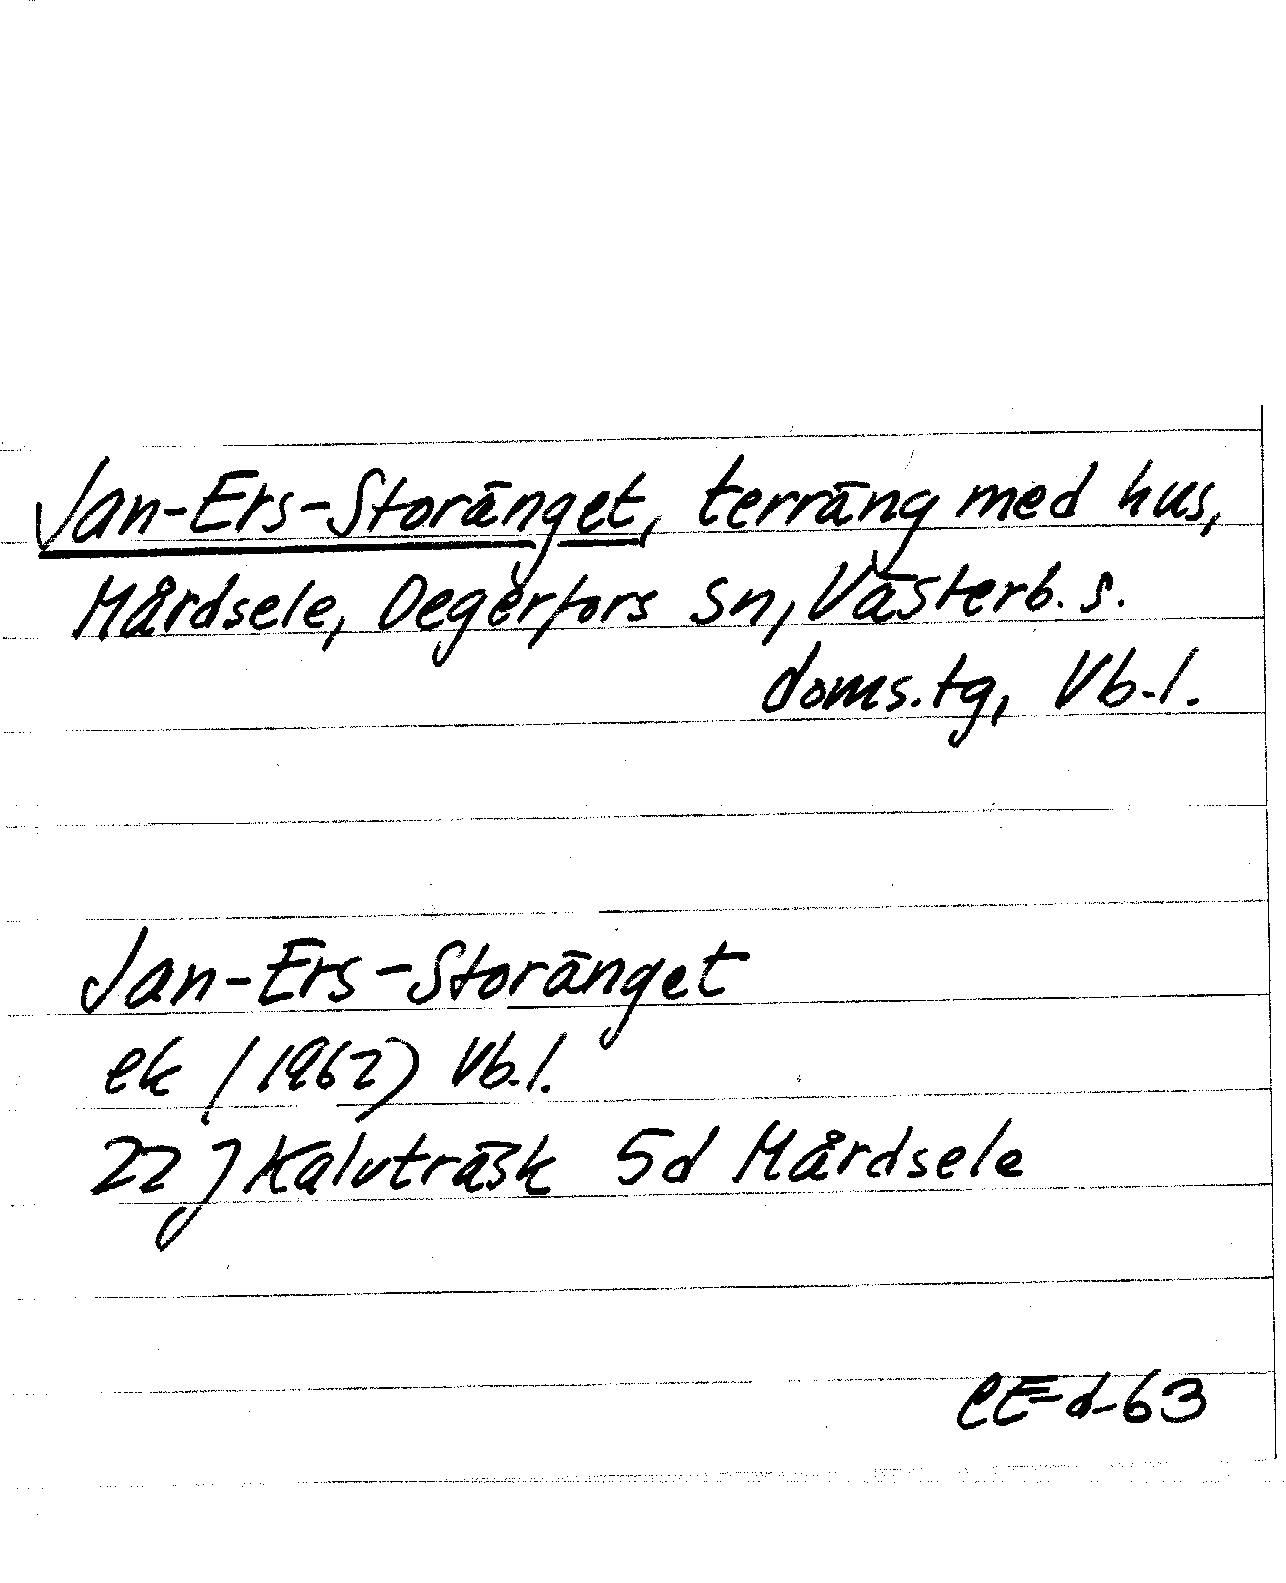 Jan-Ers-Storänget, terräng med hus,
Mårdsele, Degerfors sn, Västerb. s.
doms.tg, Vb-l.
Jan-Ers-Storänget
ek (1962) Vb.l.
22 J Kalvträsk 5d Mårdsele